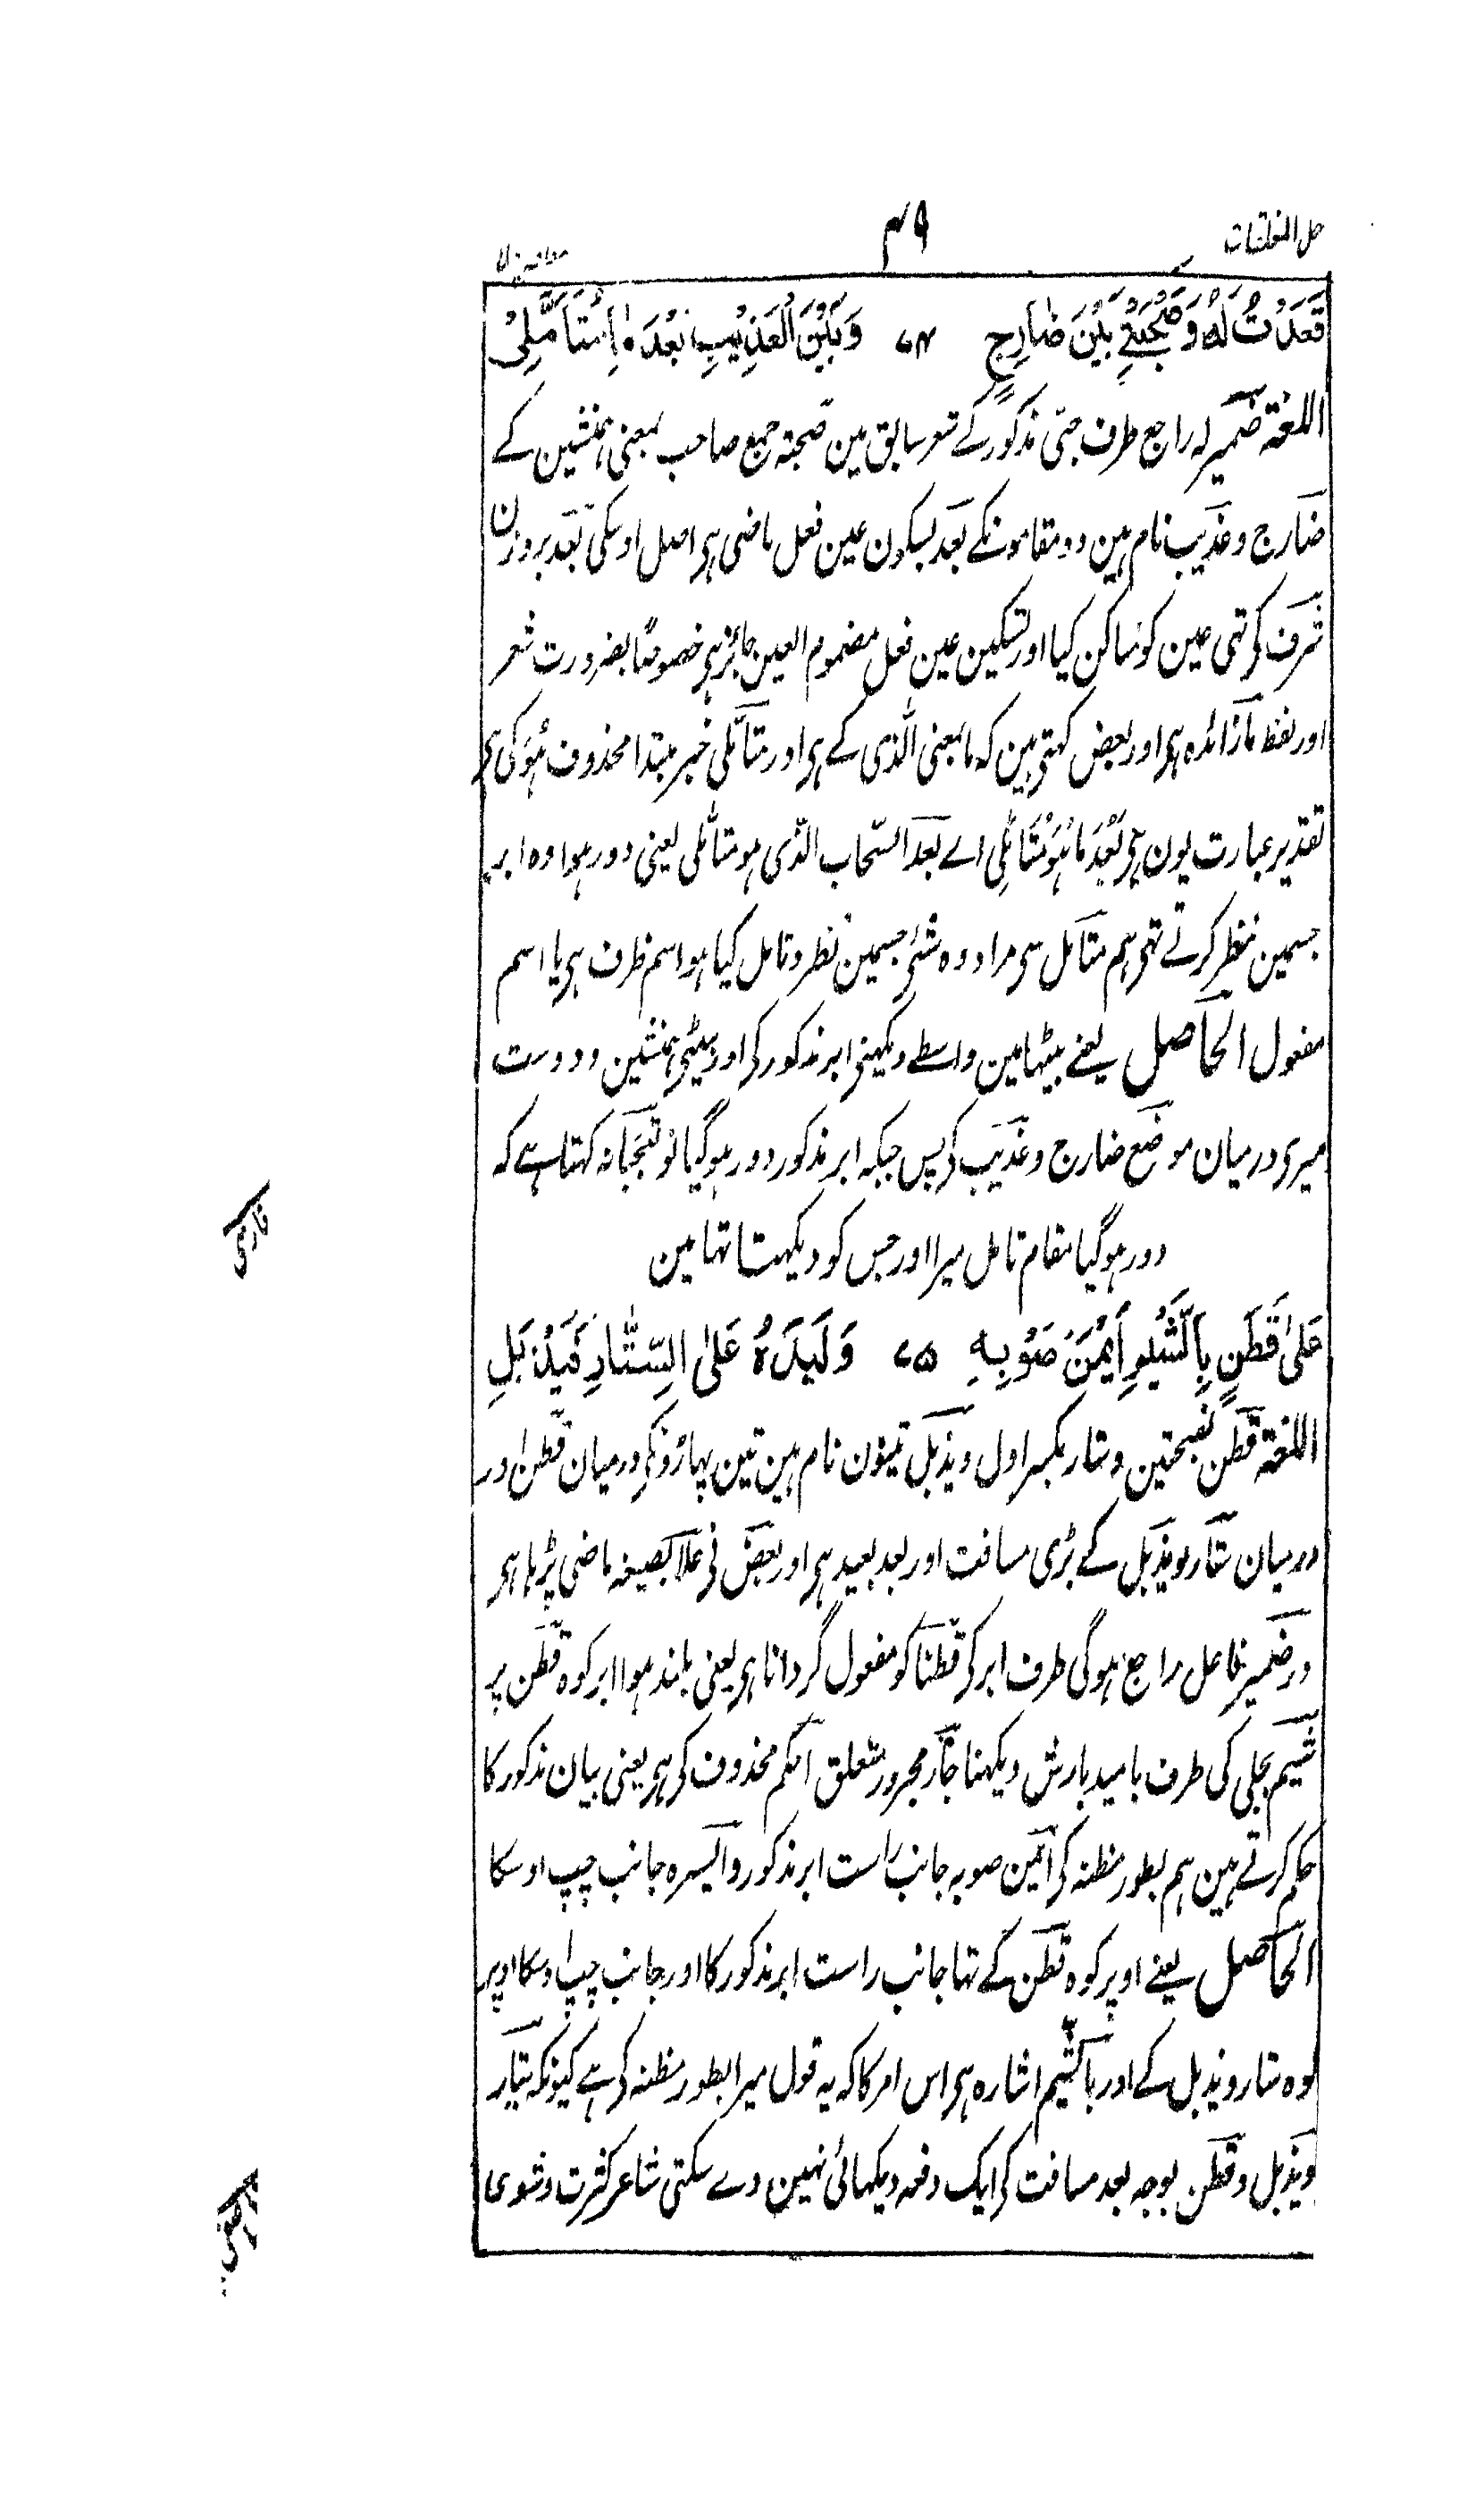 حل المغلقات
۴۹
قَعَدْتُ لَهُ وَصُحْبَتِيْ بَيْنَ ضَارِجٍ ۷۴ وَبَيْنَ الْعُذَيْبِ بَعْدَ مَا مُتَأَمَّلِيْ
اللغۃ ضمیر لہ راجع طرف حبّی مذکور کے شعر سابق مین صحبتہ جمع صاحب بمعنی ہمنشین کے
ضارج و عذیب نام ہین دو مقامونکے بَعْد بسکون عین فعل ماضی ہی اصل اوسکی بَعُد بروزن
شرف کی تہی عین کو ساکن کیا اور تسکین عین فعل مضموم العین جائز ہی خصوصًا بضرورت شعر
اور لفظ ما زائدہ ہی اور بعض کہتی ہین کہ ما بمعنی الّذی کے ہی اور متأمّلی خبر مبتدا محذوف ہُوَ کی ہی
تقدیر عبارت یون ہی بَعُدَ مَا ہُوَ مُتَأمَّلِی اے بعد السّحاب الّذی ہو متأمّلی یعنی دور ہوا وہ ابر
جسمین نظر کرتے تہی ہم متأمل سی مراد وہ شئ جسمین نظر و تامل کیا ہو اسم ظرف ہی یا اسم
مفعول الحاصل یعنے بیٹہا مین واسطے دیکہنی ابر مذکور کی اور بیٹہی ہمنشین و دوست
میری درمیان موضع ضارج و عذیب کی پس جبکہ ابر مذکور دور ہو گیا تو تعجبانہ کہتا ہے کہ
دور ہو گیا مقام تامل میرا اور جس کو دیکہتا تہا مین
عَلَىٰ قَطَنٍ بِالشَّيْمِ أَيْمَنُ صَوْبِهِ ۷۵ وَأَيْسَرُهُ عَلَى السِّتَارِ فَيَذْبُلِ
اللغۃ قطن بفتحتین و ستار بکسر اول و یذبل تینون نام ہین تین پہاڑونکی درمیان قطن اور
درمیان ستار و یذبل کے بڑی مسافت اور بعد بعید ہی اور بعض نی علا بصیغہ ماضی پڑہا ہی
ور ضمیر فاعل راجع ہو گی طرف ابر کی قطنًا کو مفعول گردانا ہی یعنی بلند ہوا ابر کوہ قطن پر
شیم بجلی کی طرف بامید بارش دیکہنا جارّ مجرور متعلق احکم محذوف کی ہی یعنی بیان مذکور کا
حکم کرتے ہین ہم بطور مظنہ کی ایمن صوبہ جانب راست ابر مذکور و ایسرہ جانب چپ اوسکا
الحاصل یعنے اوپر کوہ قطن کے تہا جانب راست ابر مذکور کا اور جانب چپ اوسکا اوپر
کوہ ستار و یذبل کے اور بالشّیم اشارہ ہی اس امر کا کہ یہ قول میرا بطور مظنہ کی ہے کیونکہ ستار
و یذبل و قطن بوجہ بعد مسافت کی ایک دفعہ دیکہائی نہین دے سکتی شاعر کثرت و